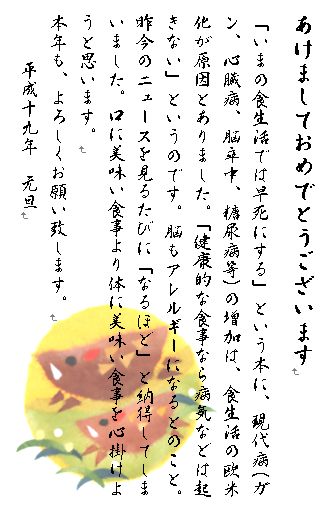 あけましておめでとうございます
「いまの食生活では早死にする」という本に、現代病(ガ
ン、心臓病、脳卒中、糖尿病等)の増加は、食生活の欧米
化が原因とありました。「健康的な食事なら病気などは起
きない」というのです。脳もアレルギーになるとのこと。
昨今のニュースを見るたびに「なるほど」と納得してしま
いました。口に美味い食事より体に美味い食事を心掛けよ
うと思います。
本年も、よろしくお願い致します。
平成十九年 元旦